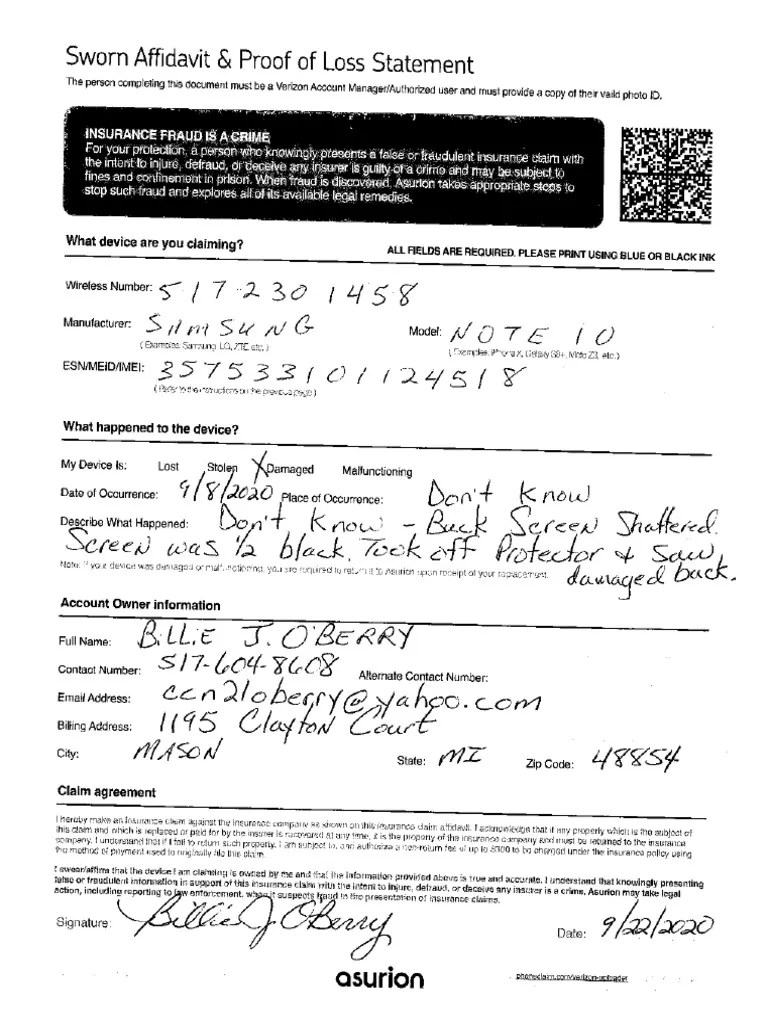 Sworn Affidavit & Proof of Loss Statement
The person completing this document must be a Verizon Account Manager/Authorized user and must provide a copy of their valid photo ID.
INSURANCE FRAUD IS A CRIME
For your protection, a person who knowingly presents a false or fraudulent insurance claim with
the intent to injure, defraud, or deceive any insurer is guilty of a crime and may be subject to
fines and confinement in prison. When fraud is discovered, Asurion takes appropriate steps to
stop such fraud and explores all of its available legal remedies.
What device are you claiming? ALL FIELDS ARE REQUIRED. PLEASE PRINT USING BLUE OR BLACK INK
Wireless Number: 517 230 1458
Manufacturer: SAMSUNG Model: NOTE 10
(Examples: Samsung, LG, ZTE, etc.) (Examples: iPhone X, Galaxy S8+, Moto Z3, etc.)
ESN/MEID/IMEI: 357533101124518
(Refer to the instructions on the previous page)
What happened to the device?
My Device Is: Lost Stolen X Damaged Malfunctioning
Date of Occurrence: 9/8/2020 Place of Occurrence: Don't Know
Describe What Happened: Don't Know - Back Screen Shattered.
Screen was 1/2 black. Took off Protector & Saw
damaged back.
Note: If your device was damaged or malfunctioning, you are required to return it to Asurion upon receipt of your replacement.
Account Owner information
Full Name: BILLIE J. O'BERRY
Contact Number: 517-604-8608 Alternate Contact Number:
Email Address: ccn2loberry@yahoo.com
Billing Address: 1195 Clayton Court
City: MASON State: MI Zip Code: 48854
Claim agreement
I hereby make an insurance claim against the insurance company as shown on this insurance claim affidavit. I acknowledge that if any property which is the subject of
this claim and which is replaced or paid for by the insurer is recovered at any time, it is the property of the insurance company and must be returned to the insurance
company. I understand that if I fail to return such property, I am subject to, and authorize a non-return fee of up to $000 to be charged under the insurance policy using
the method of payment used to originally file this claim.
I swear/affirm that the device I am claiming is owned by me and that the information provided above is true and accurate. I understand that knowingly presenting
false or fraudulent information in support of this insurance claim with the intent to injure, defraud, or deceive any insurer is a crime. Asurion may take legal
action, including reporting to law enforcement, when it suspects fraud in the presentation of insurance claims.
Signature: Billie J O'Berry Date: 9/22/2020
asurion phoneclaim.com/verizon-uploader